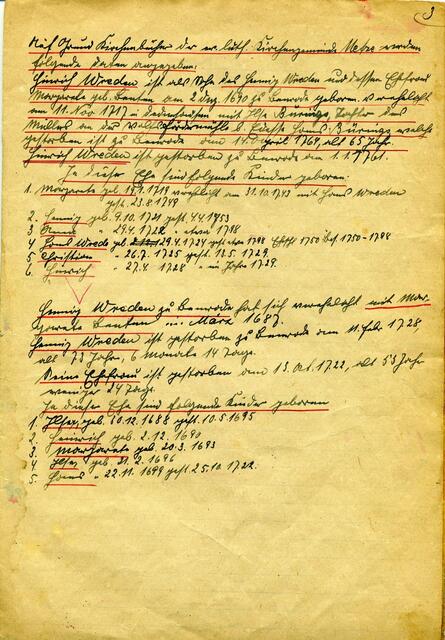 3
Auf Grund Kirchenbücher der ev. luth. Kirchengemeinde werden
folgende Daten angegeben:
Hinrich Wreden ist als Sohn des Hennig Wreden und dessen Ehefrau
Margarete geb. Benten am 2 Dez. 1690 zu Benrode geboren. Verehelicht
am 11. Nov 1717 in mit Ilse Tochter des
Müllers an der b. Hans welche
gestorben ist zu Benrode den 14. April 1769, alt 65 Jahr.
Hinrich Wreden ist gestorben zu Benrode am 1.1.1761.
In dieser Ehe sind folgende Kinder geboren:
1. Margarete geb 1719 verehlicht am 31.10.1743 mit Hans Wreden
gest. 23.8.1749
2. Hennig geb. 9.10.1721 gest 4.4.1753
3 " 29.4.1722 " etwa 1798
4 Hans Wrede geb. 29.4.1724 gest etwa 1798 1750 1750-1784
5 Christian " 26.7.1725 gest. 12.5.1729
6. Heinrich " 27.4. 1728 " im Jahre 1729.
Hennig Wreden zu Benrode hat sich verehelicht mit Mar-
garete Benten im März 1687.
Hennig Wreden ist gestorben zu Benrode am 11. Feb. 1728,
alt 73 Jahr, 6 Monate 14 Tage.
Seine Ehefrau ist gestorben am 13. Oct. 1722, alt 53 Jahr
weniger 24 Tage.
In dieser Ehe sind folgende Kinder geboren
1. Ilse, geb. 10.12.1688 gest. 10.5.1695
2. Heinrich geb. 2.12.1690
3. Margarete geb. 20.3.1693
4 Ilse, geb. 21. 2. 1696
5. Hans " 22.11.1699 gest. 25.10.1722.